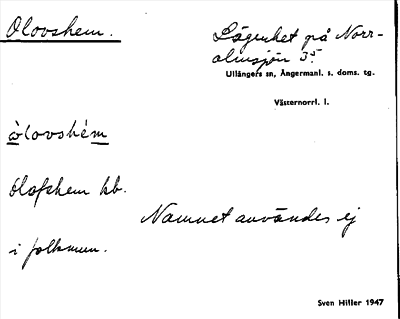 Olovshem.
Lägenhet på Norr-
almsjön 3⁵
Ullångers sn, Ångermanl. s. doms. tg.
Västernorrl. l.
òlovshém
Olofshem kb.
Namnet användes ej
i folkmun.
Sven Hiller 1947